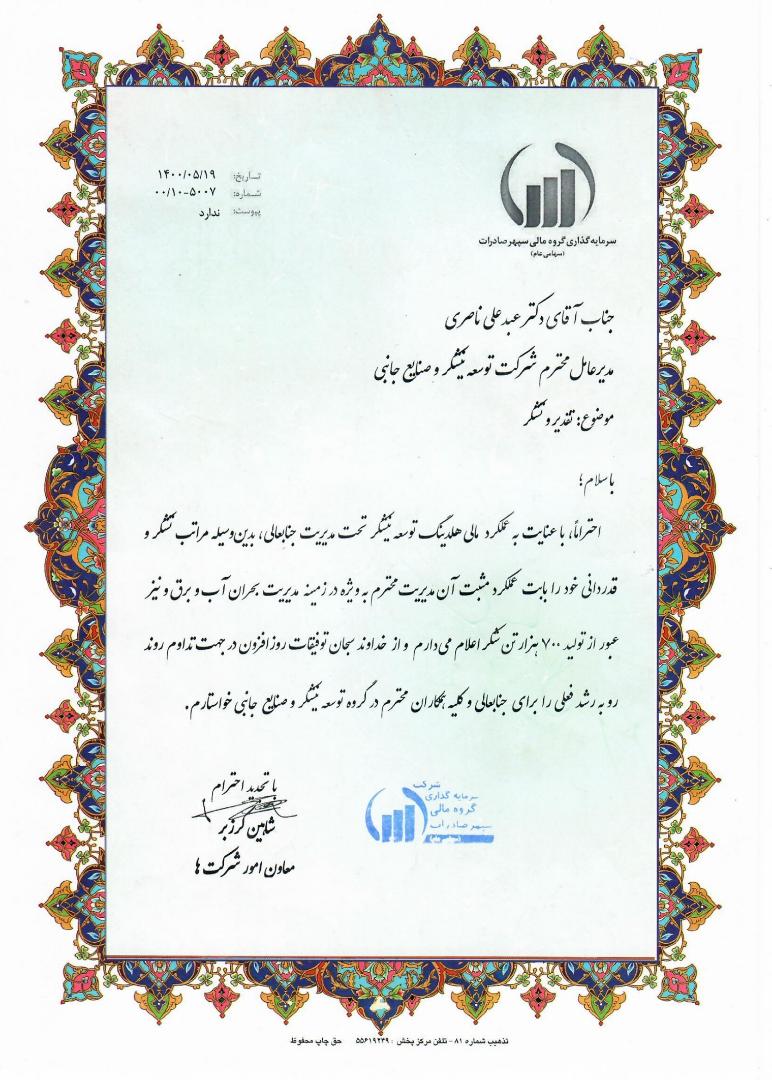 تاریخ: ۱۴۰۰/۰۵/۱۹
شماره: ۰۰/۱۰-۵۰۰۷
پیوست: ندارد
سرمایه گذاری گروه مالی سپهر صادرات
(سهامی عام)
جناب آقای دکتر عبدعلی ناصری
مدیرعامل محترم شرکت توسعه نیشکر و صنایع جانبی
موضوع: تقدیر و تشکر
با سلام؛
احتراماً، با عنایت به عملکرد مالی هلدینگ توسعه نیشکر تحت مدیریت جنابعالی، بدین‌وسیله مراتب تشکر و
قدردانی خود را بابت عملکرد مثبت آن مدیریت محترم به ویژه در زمینه مدیریت بحران آب و برق و نیز
عبور از تولید ۷۰۰ هزار تن شکر اعلام می‌دارم و از خداوند سبحان توفیقات روزافزون در جهت تداوم روند
رو به رشد فعلی را برای جنابعالی و کلیه همکاران محترم در گروه توسعه نیشکر و صنایع جانبی خواستارم.
با تجدید احترام
شاهین گرزبر
معاون امور شرکت ها
شرکت
سرمایه گذاری
گروه مالی
سپهر صادرات
(سهامی عام)
تذهیب شماره ۸۱ - تلفن مرکز پخش : ۵۵۶۱۹۲۳۹ حق چاپ محفوظ